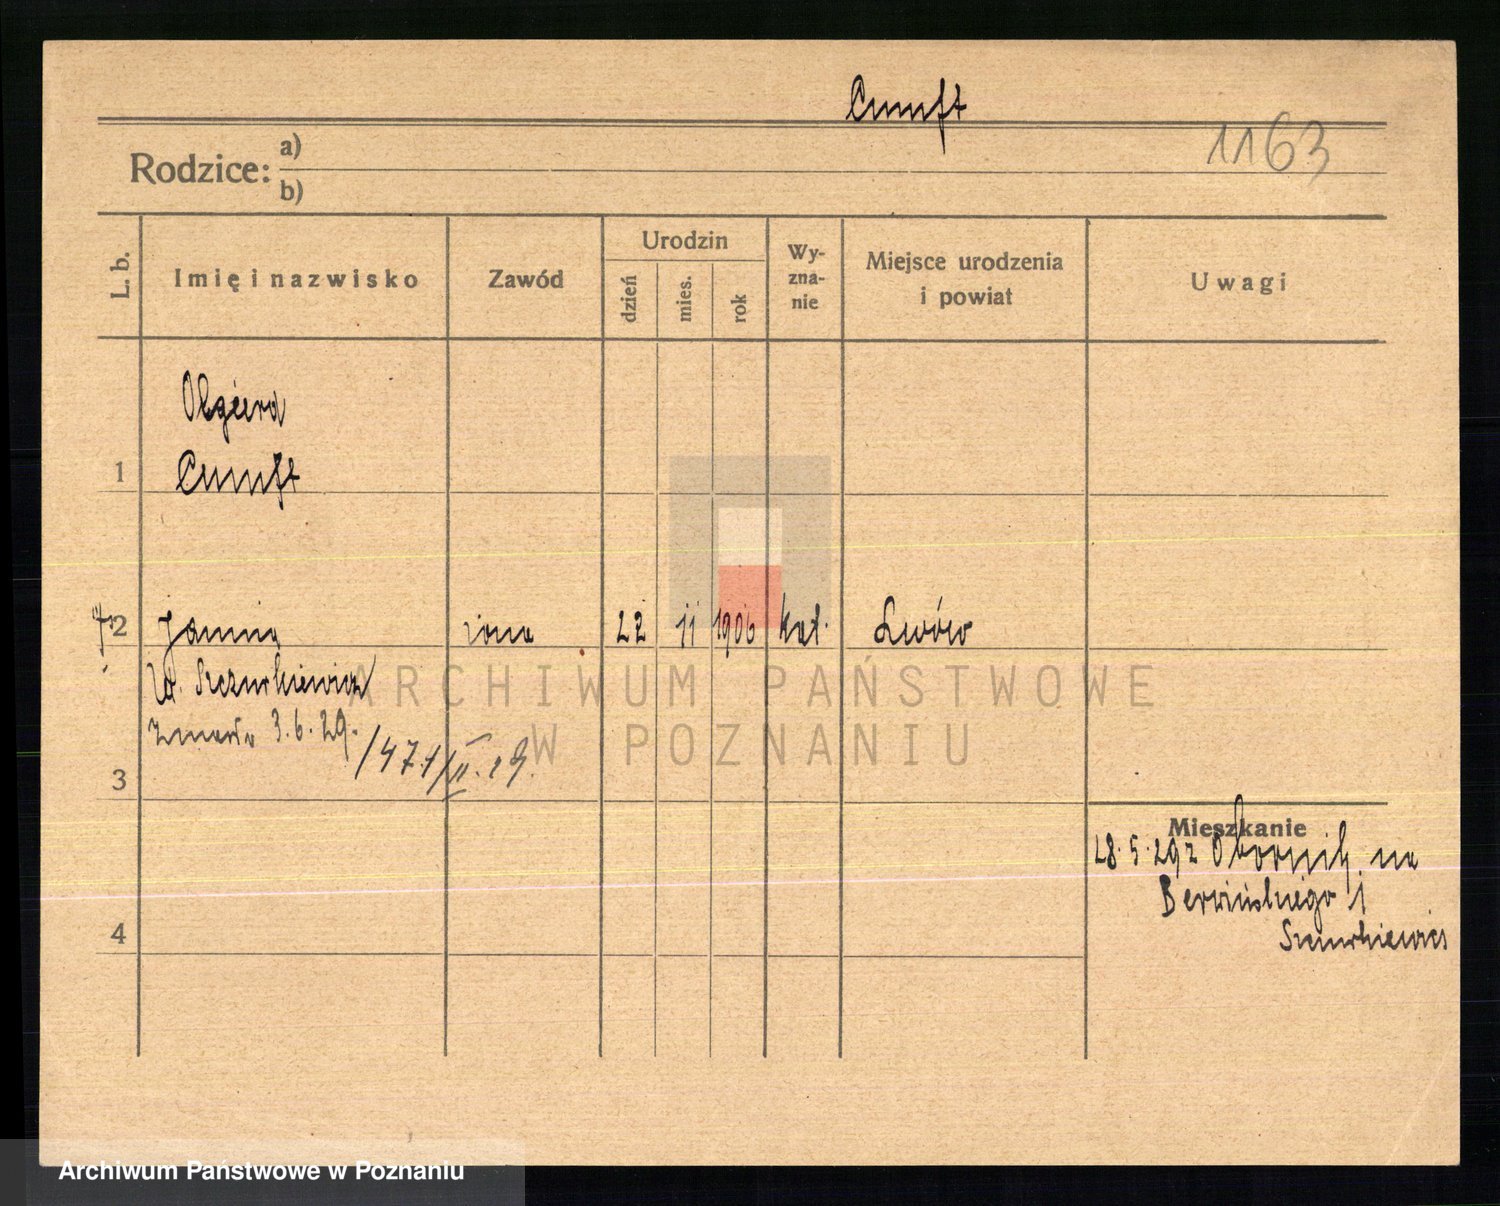 Cumft
1163
Rodzice: a)
b)
L. b.
Imię i nazwisko
Zawód
Urodzin
dzień
mies.
rok
Wy-
zna-
nie
Miejsce urodzenia
i powiat
Uwagi
Olgierd
1 Cumft
2 Janina żona 22 11 1906 kat. Lwów
Szczurkiewicz
zmarła 3.6.29.
3
Mieszkanie
28.5.29 z Obornik na
Berwińskiego 1
Szczurkiewicz
4
ARCHIWUM PAŃSTWOWE
W POZNANIU
Archiwum Państwowe w Poznaniu